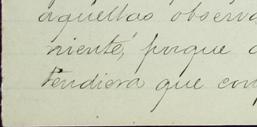 aquellas observa
niente, porque a
tendiera que con